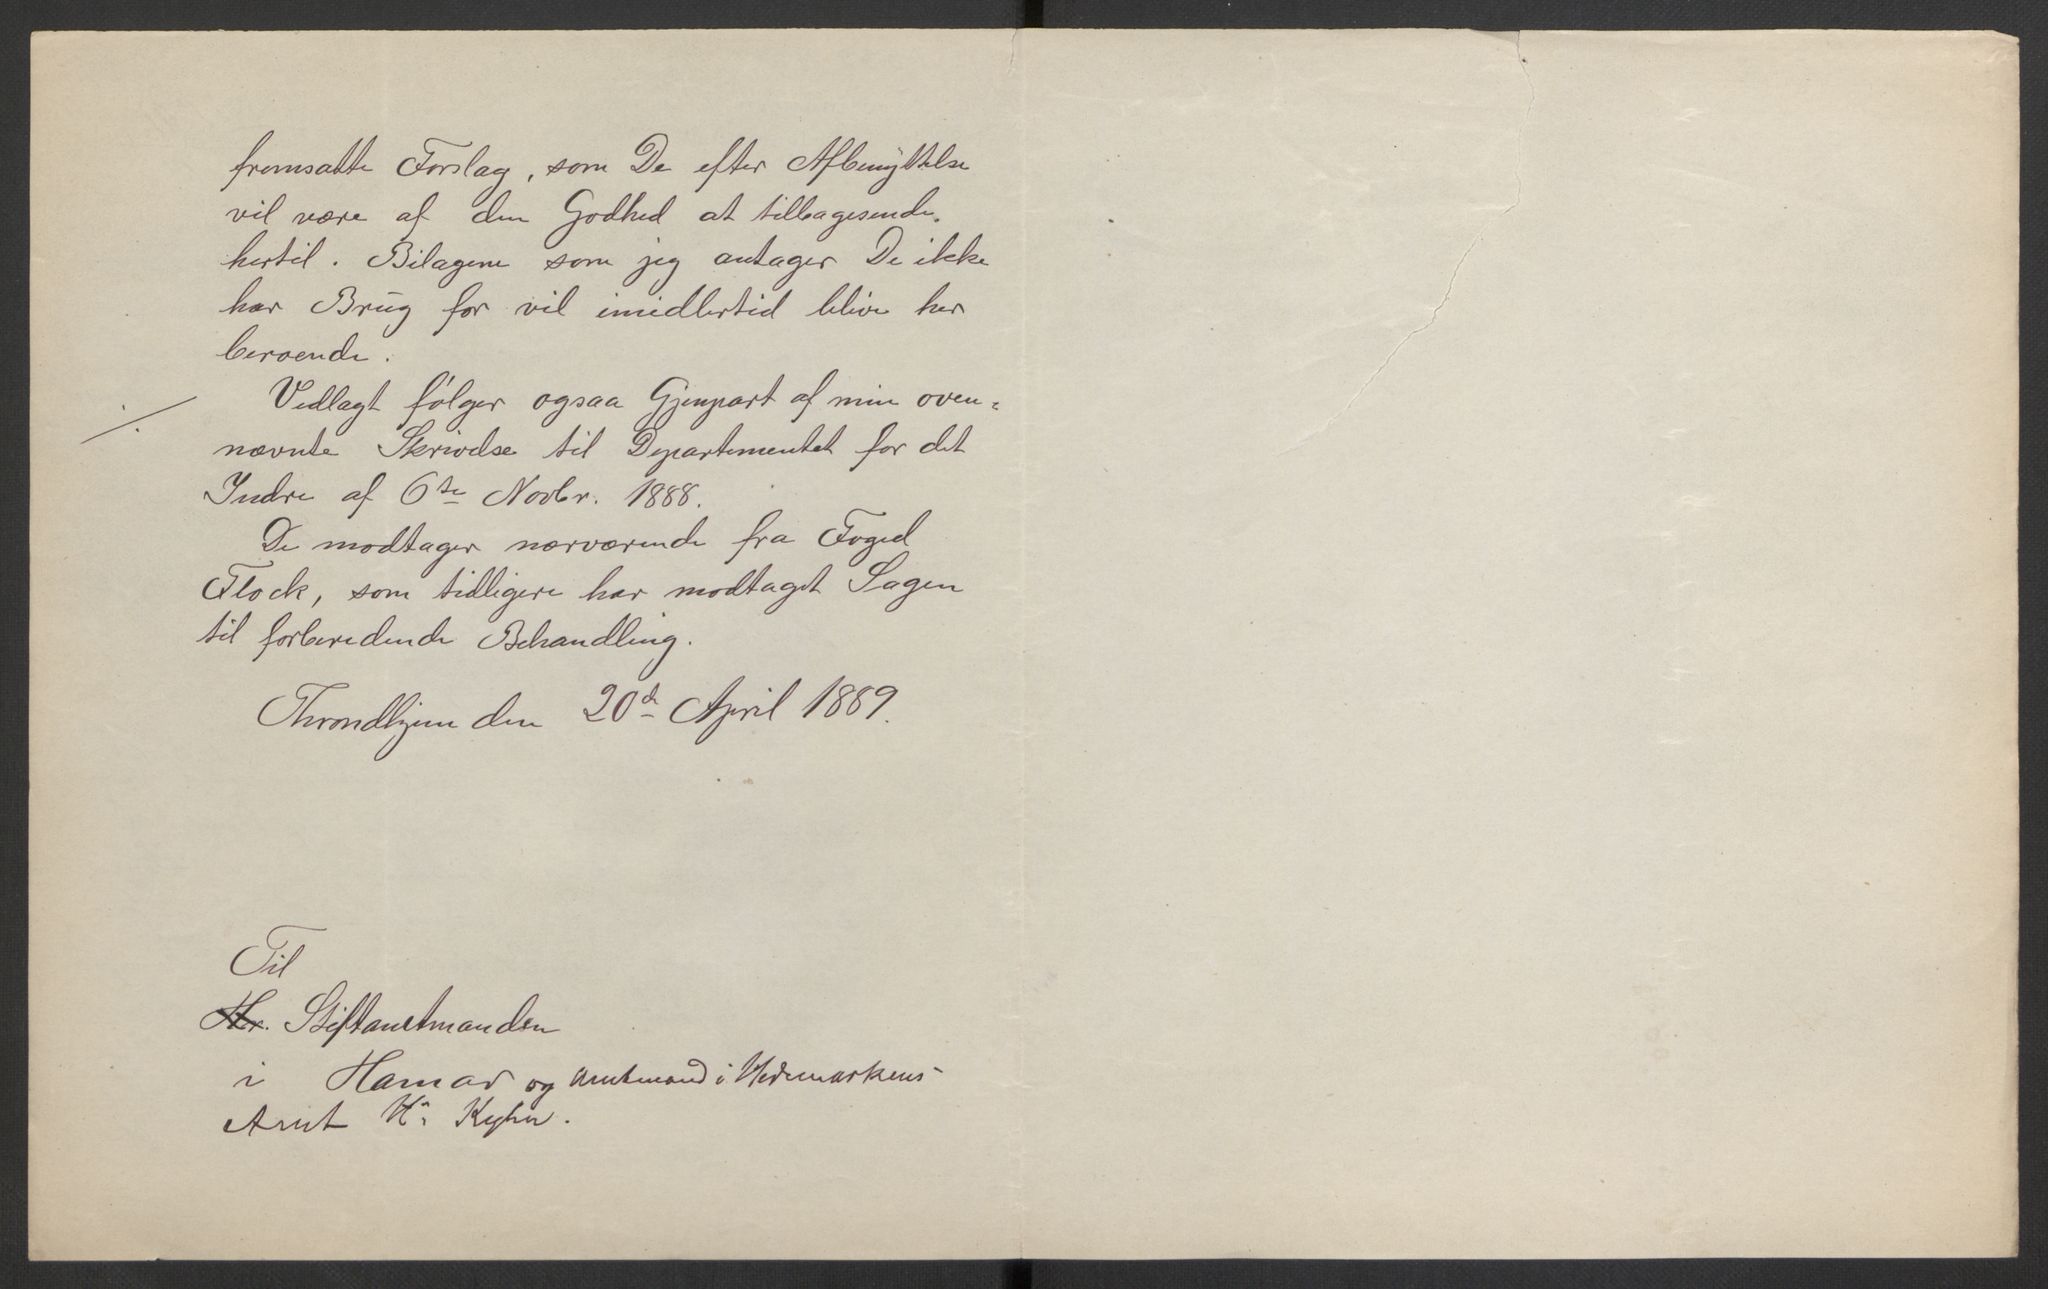 fremsatte Forslag, som De efter Afbenyttelse
vil være af den Godhed at tilbagesende
hertil. Bilagene som jeg antager De ikke
har Brug for vil imidlertid blive her
beroende.
Vedlagt følger ogsaa Gjenpart af min oven-
nævnte Skrivelse til Departementet for det
Indre af 6te Novbr. 1888.
De modtager nærværende fra Foged
Flock, som tidligere har modtaget Sagen
til forberedende Behandling.
Throndhjem den 20de April 1889.
Til
Hr. Stiftamtmanden
i Hamar og Amtmand i Hedemarkens
Amt Hr. Kyhn.